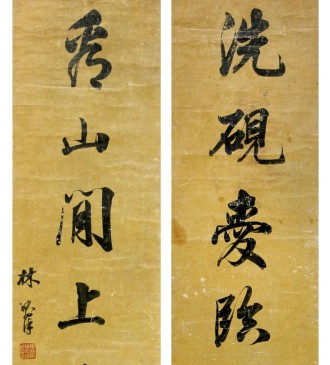 洗硯愛臨
看山閒上
林